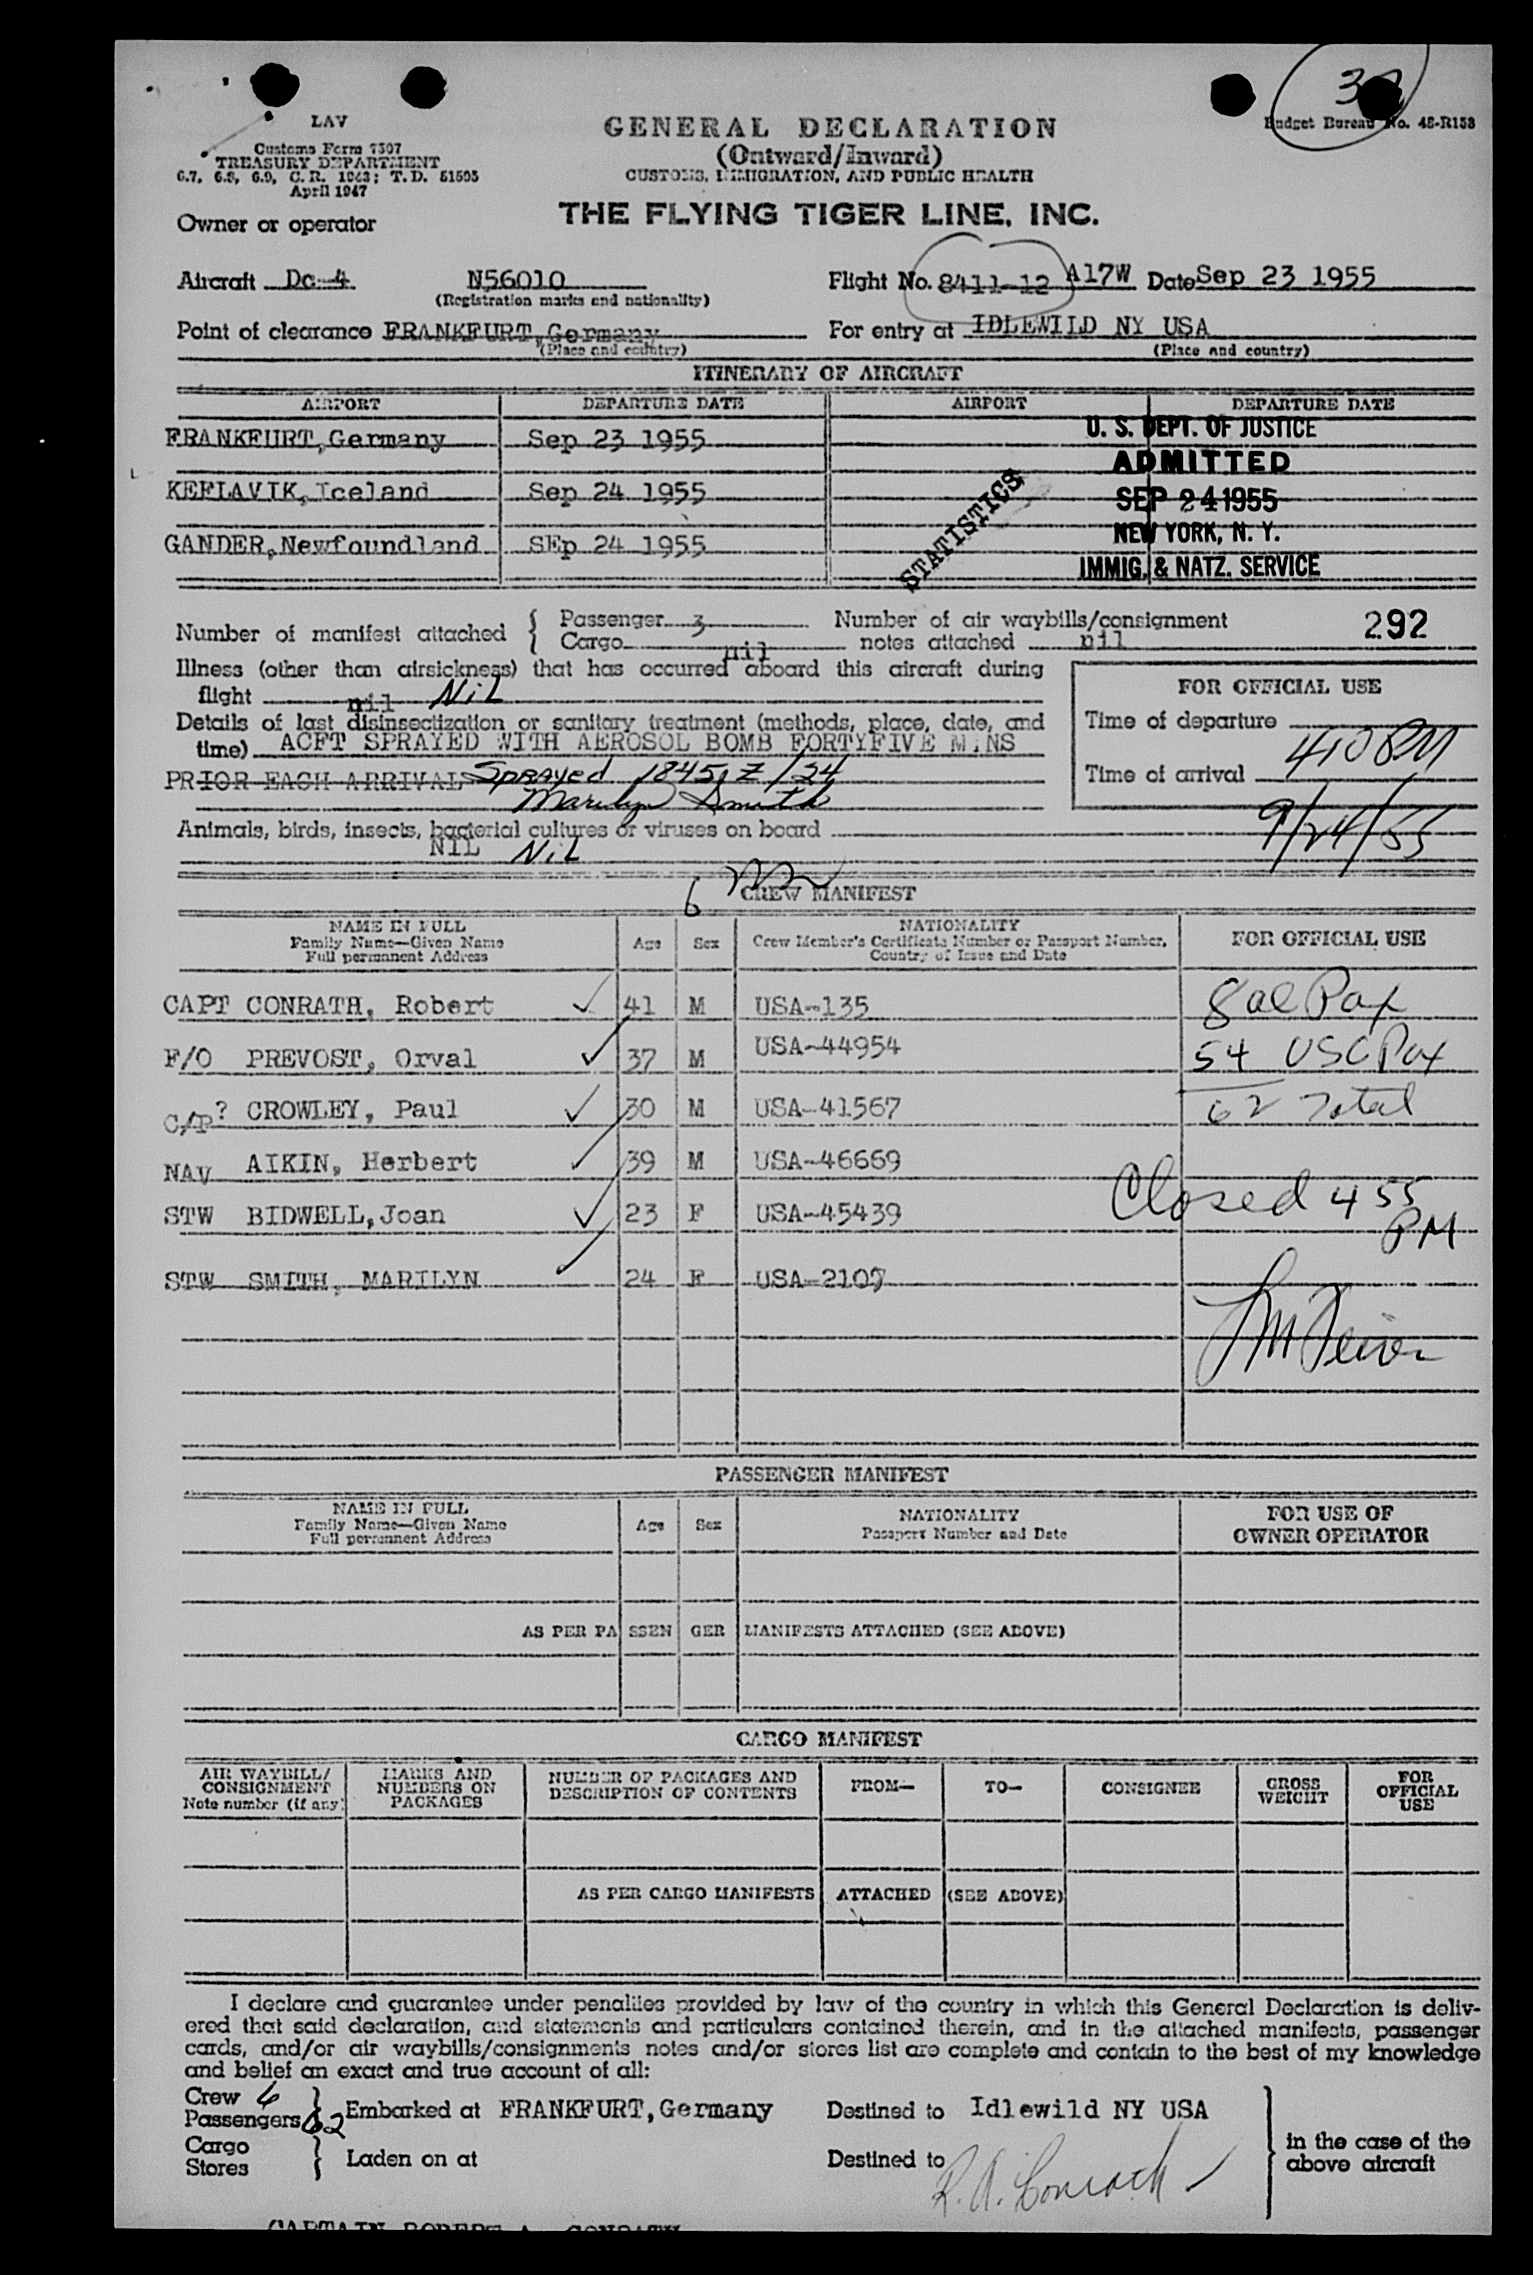 LAV
Customs Form 7507
TREASURY DEPARTMENT
6.7, 6.8, 6.9, C.R. 1943; T.D. 51595
April 1947
GENERAL DECLARATION
(Outward/Inward)
CUSTOMS, IMMIGRATION, AND PUBLIC HEALTH
Budget Bureau No. 48-R158
Owner or operator
THE FLYING TIGER LINE, INC.
Aircraft Dc-4 N56010 Flight No. 8411-12 A17W Date Sep 23 1955
(Registration marks and nationality)
Point of clearance FRANKFURT,Germany For entry at IDLEWILD NY USA
(Place and country) (Place and country)
ITINERARY OF AIRCRAFT
AIRPORT DEPARTURE DATE AIRPORT DEPARTURE DATE
FRANKFURT,Germany Sep 23 1955
KEFLAVIK,Iceland Sep 24 1955
GANDER,Newfoundland SEp 24 1955
STATISTICS
U. S. DEPT. OF JUSTICE
ADMITTED
SEP 24 1955
NEW YORK, N. Y.
IMMIG. & NATZ. SERVICE
Number of manifest attached { Passenger 3 Number of air waybills/consignment 292
Cargo nil notes attached nil
Illness (other than airsickness) that has occurred aboard this aircraft during
flight nil NiL
Details of last disinsectization or sanitary treatment (methods, place, date, and
time) ACFT SPRAYED WITH AEROSOL BOMB FORTYFIVE MINS
PRIOR EACH ARRIVAL Sprayed 1845 Z /24
Marilyn Smith
Animals, birds, insects, bacterial cultures or viruses on board
NIL NiL
FOR OFFICIAL USE
Time of departure
Time of arrival 410 PM
9/24/55
6 CREW MANIFEST
NAME IN FULL
Family Name—Given Name
Full permanent Address
Age Sex
NATIONALITY
Crew Member's Certificate Number or Passport Number,
Country of Issue and Date
FOR OFFICIAL USE
CAPT CONRATH, Robert 41 M USA-135
F/O PREVOST, Orval 37 M USA-44954
C/P? CROWLEY, Paul 30 M USA-41567
NAV AIKIN, Herbert 39 M USA-46669
STW BIDWELL,Joan 23 F USA-45439
STW SMITH, MARILYN 24 F USA-2107
8 al Pax
54 USC Pax
62 Total
Closed 4 55
PM
PASSENGER MANIFEST
NAME IN FULL
Family Name—Given Name
Full permanent Address
Age Sex
NATIONALITY
Passport Number and Date
FOR USE OF
OWNER OPERATOR
AS PER PASSENGER MANIFESTS ATTACHED (SEE ABOVE)
CARGO MANIFEST
AIR WAYBILL/
CONSIGNMENT
Note number (if any)
MARKS AND
NUMBERS ON
PACKAGES
NUMBER OF PACKAGES AND
DESCRIPTION OF CONTENTS
FROM— TO— CONSIGNEE
GROSS
WEIGHT
FOR
OFFICIAL
USE
AS PER CARGO MANIFESTS ATTACHED (SEE ABOVE)
I declare and guarantee under penalties provided by law of the country in which this General Declaration is deliv-
ered that said declaration, and statements and particulars contained therein, and in the attached manifests, passenger
cards, and/or air waybills/consignments notes and/or stores list are complete and contain to the best of my knowledge
and belief an exact and true account of all:
Crew 6
Passengers 62 } Embarked at FRANKFURT,Germany Destined to Idlewild NY USA
Cargo
Stores } Laden on at Destined to
in the case of the
above aircraft
R. A. Conrath
CAPTAIN ROBERT A. CONRATH